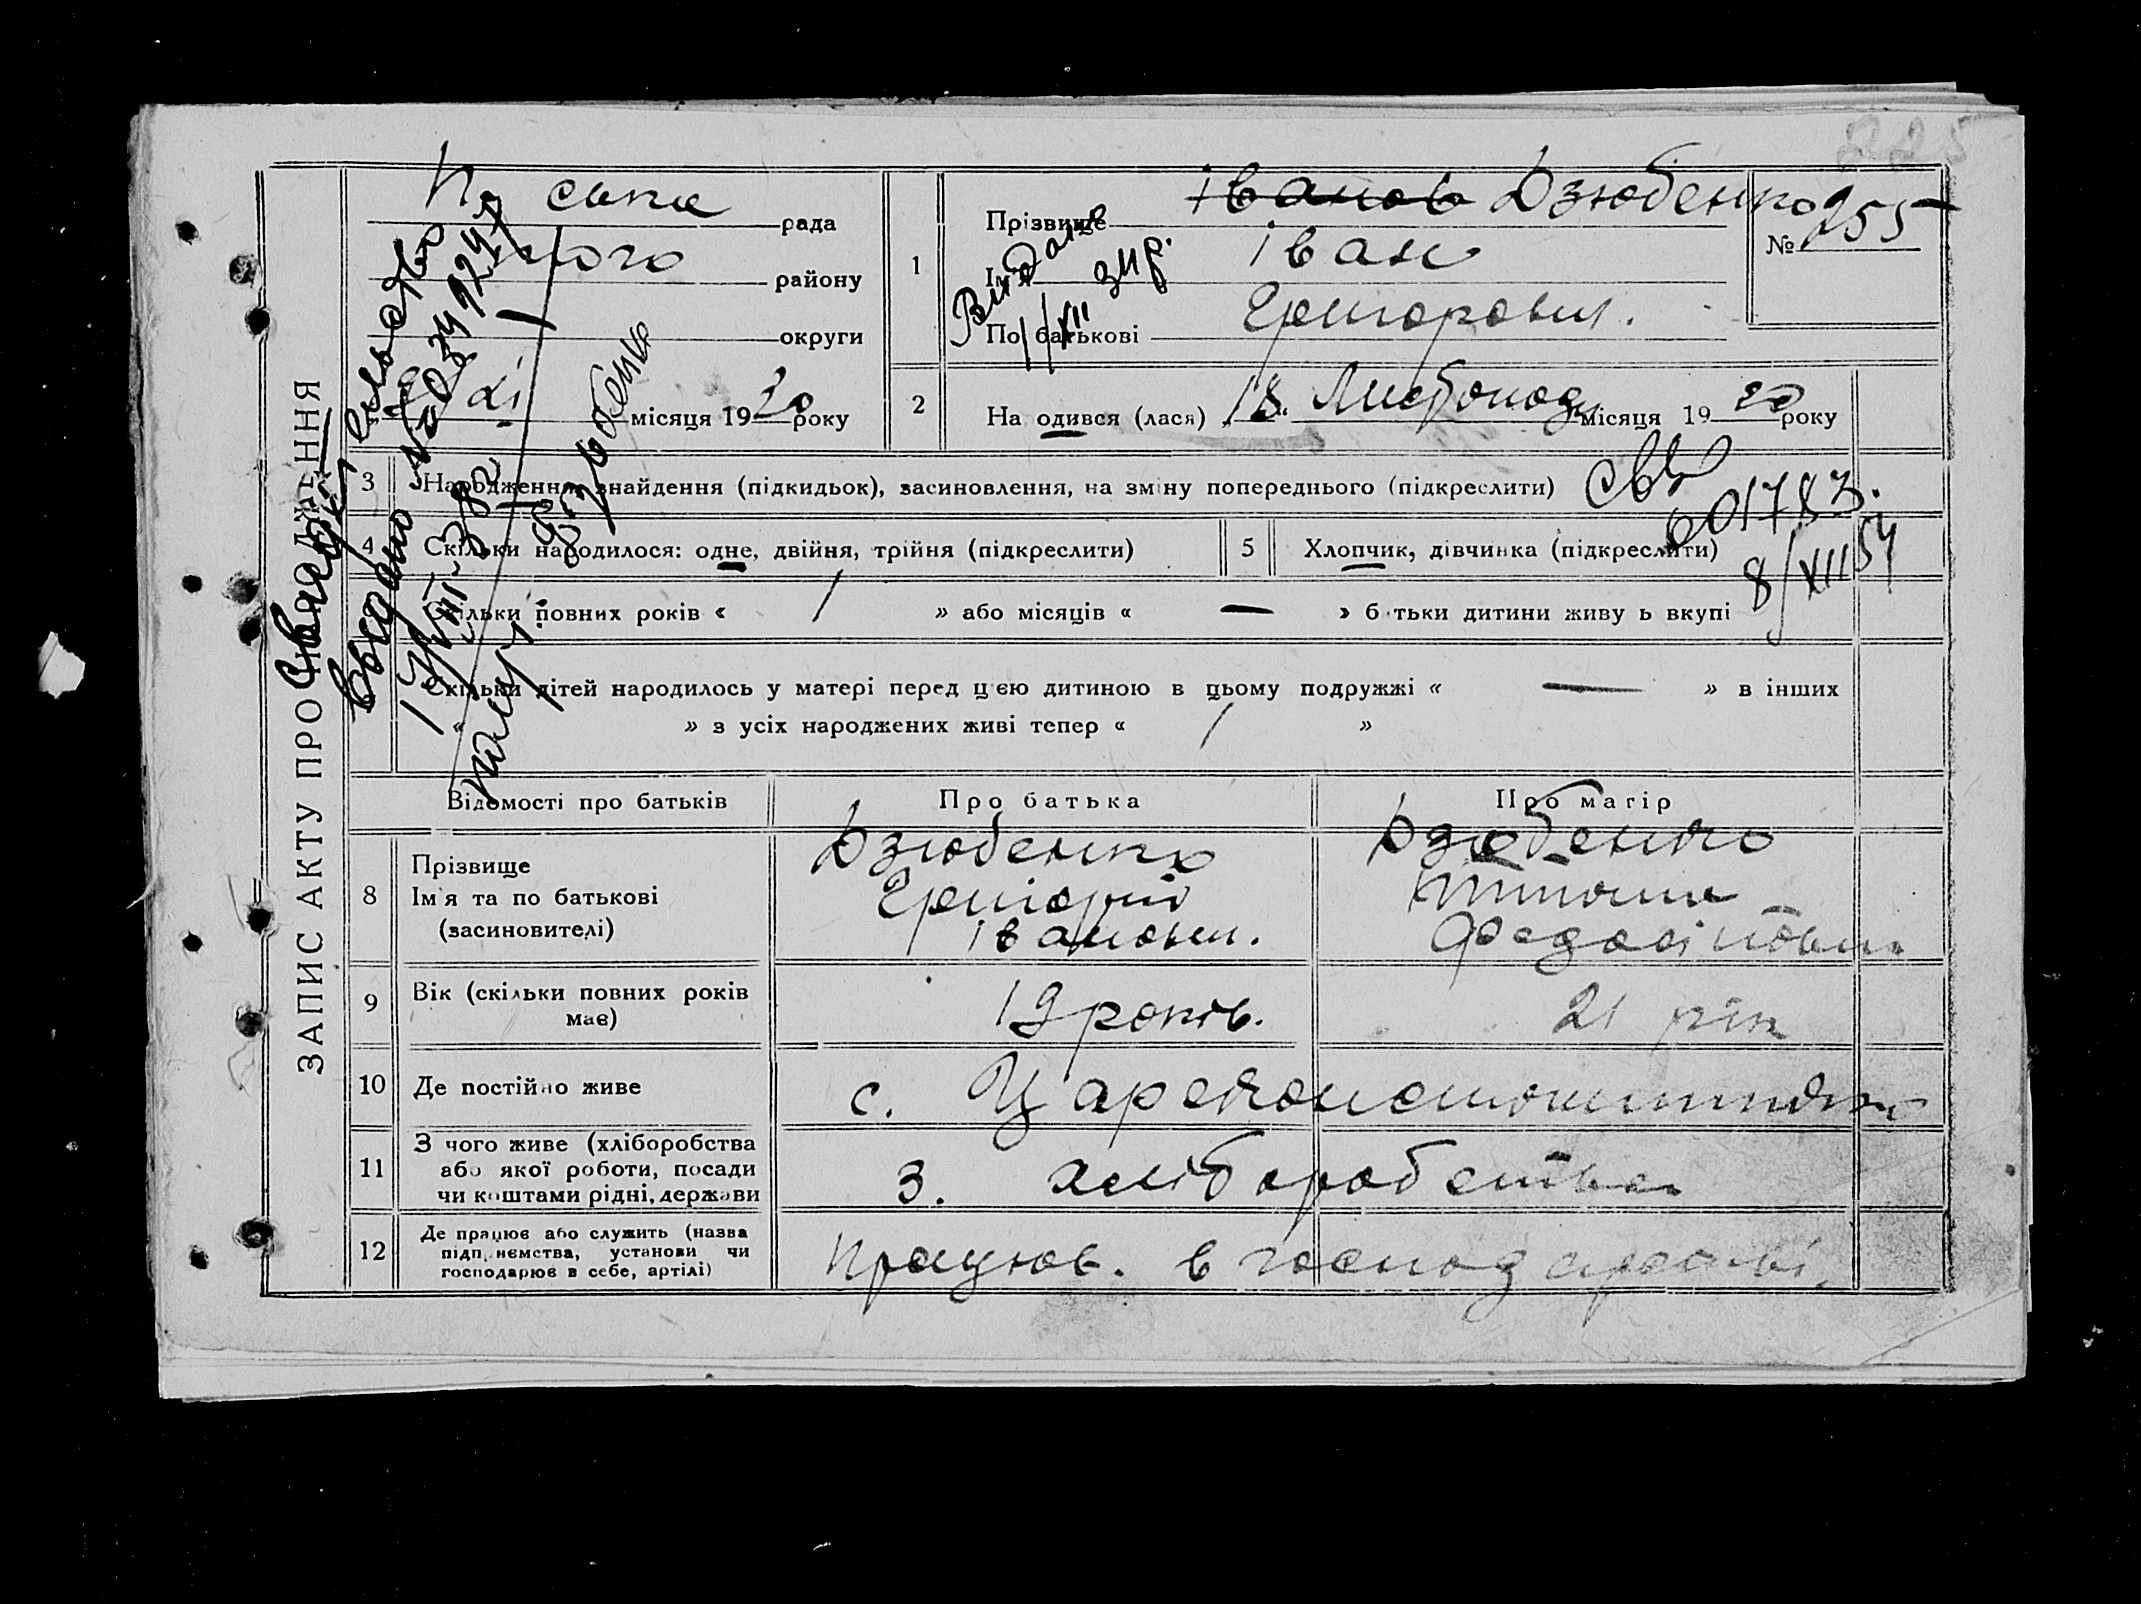 ЗАПИС АКТУ ПРО НАРОДЖЕННЯ
рада
району
округи
місяця 1930 року
1
Прізвище Іванов Дзюбенко
Ім'я Іван
По батькові Григорович.
№ 255
Видане
1/XII 31 р.
2
На одився (лася) 18 Листопода місяця 19 30 року
3
Народження, знайдення (підкидьок), засиновлення, на зміну попереднього (підкреслити)
601783.
8/XII 54
4
Скільки народилося: одне, двійня, трійня (підкреслити)
5
Хлопчик, дівчинка (підкреслити)
Скільки повних років « 1 » або місяців « — » б тьки дитини живу ь вкупі
Скільки дітей народилось у матері перед цією дитиною в цьому подружжі « — » в інших
« » з усіх народжених живі тепер « 1 »
Відомості про батьків
Про батька
Про матір
8
Прізвище
Ім'я та по батькові
(засиновителі)
Дзюбенко
Григорій
Іванович.
Дзюбенко
9
Вік (скільки повних років
має)
19 років.
21 рік
10
Де постійно живе
с. Царекон
11
З чого живе (хліборобства
або якої роботи, посади
чи коштами рідні, держави
З. хліборобства
12
Де працює або служить (назва
підприємства, установи чи
господарює в себе, артілі)
Працює. в господарстві.